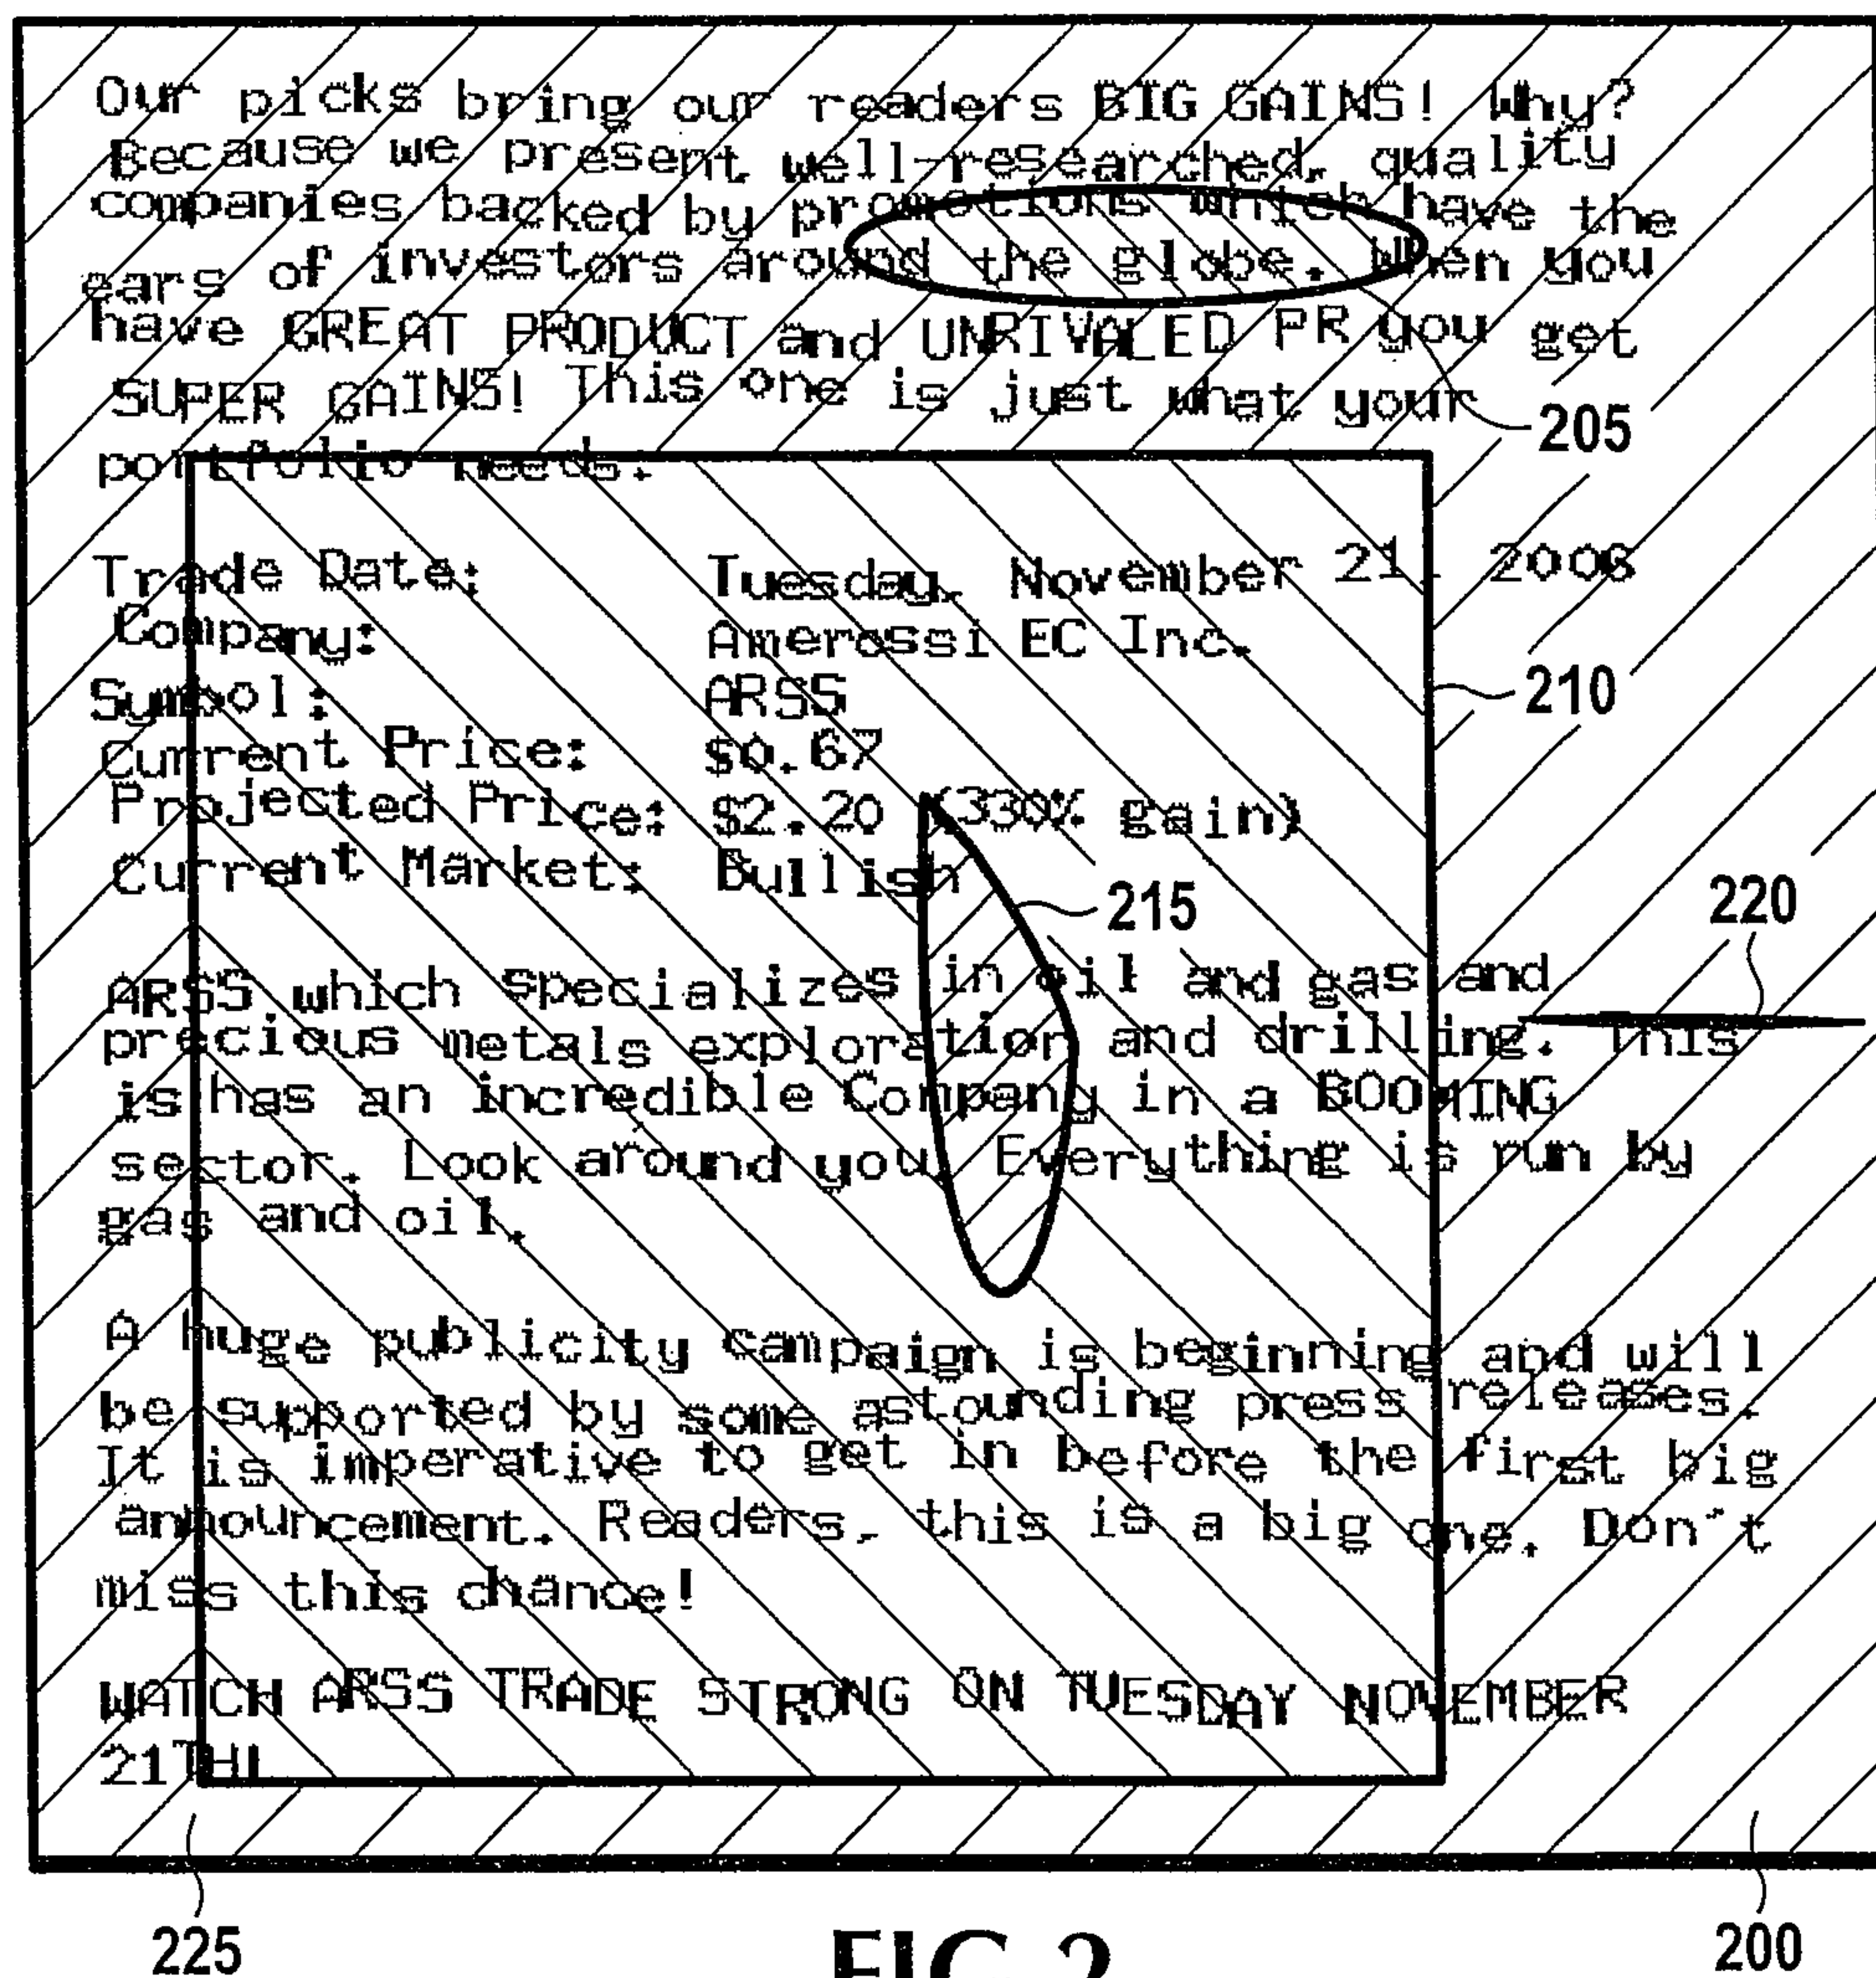 Our picks bring our readers BIG GAINS! Why?
Because we present well-researched, quality
companies backed by promotions which have the
ears of investors around the globe. When you
have GREAT PRODUCT and UNRIVALED PR you get
SUPER GAINS! This one is just what your
205
portfolio needs.
Trade Date: Tuesday, November 21, 2006
Company: Amerossi EC Inc.
210
Symbol: ARSS
Current Price: $0.67
Projected Price: $2.20 (330% gain)
Current Market: Bullish
215
220
ARSS which specializes in oil and gas and
precious metals exploration and drilling. This
is has an incredible Company in a BOOMING
sector. Look around you. Everything is run by
gas and oil.
A huge publicity campaign is beginning and will
be supported by some astounding press releases.
It is imperative to get in before the first big
announcement. Readers, this is a big one. Don't
miss this chance!
WATCH ARSS TRADE STRONG ON TUESDAY NOVEMBER
21TH!
225
200
FIG. 2